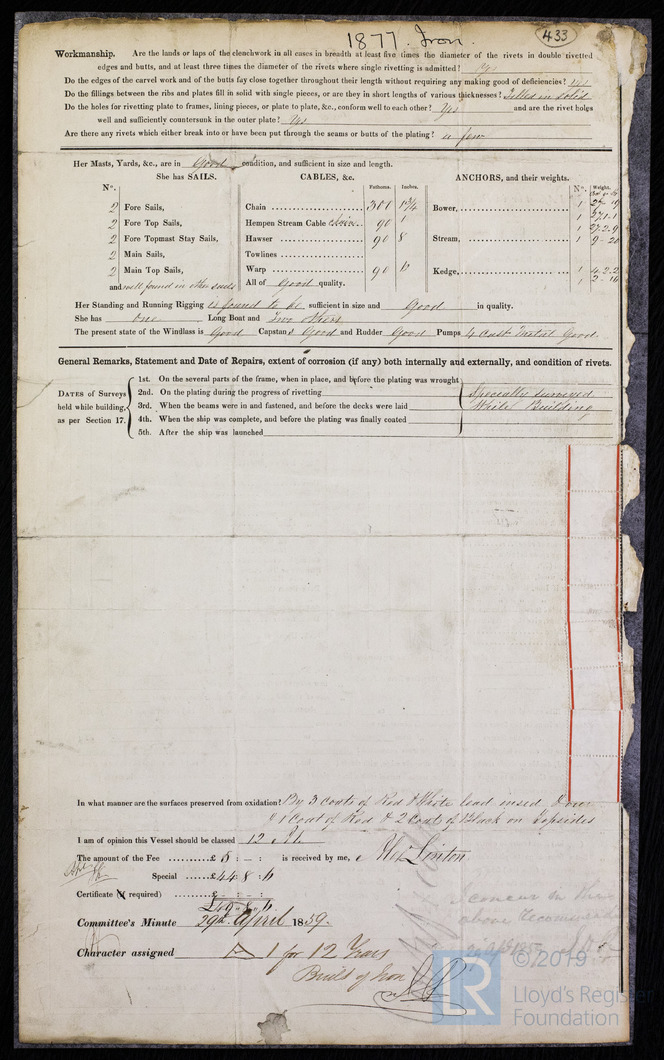 1877. Iron.
433
Workmanship. Are the lands or laps of the clenchwork in all cases in breadth at least five times the diameter of the rivets in double rivetted
edges and butts, and at least three times the diameter of the rivets where single rivetting is admitted? Yes
Do the edges of the carvel work and of the butts fay close together throughout their length without requiring any making good of deficiencies? Yes
Do the fillings between the ribs and plates fill in solid with single pieces, or are they in short lengths of various thicknesses? Filled in solid
Do the holes for rivetting plate to frames, lining pieces, or plate to plate, &c., conform well to each other? Yes and are the rivet holes
well and sufficiently countersunk in the outer plate? Yes
Are there any rivets which either break into or have been put through the seams or butts of the plating? a few
Her Masts, Yards, &c., are in Good condition, and sufficient in size and length.
She has SAILS. CABLES, &c. ANCHORS, and their weights.
No. Fathoms. Inches. No. Weight.
2 Fore Sails, Chain 300 1 3/4 Bower, 1
2 Fore Top Sails, Hempen Stream Cable 90 1 1 27.1.1
2 Fore Topmast Stay Sails, Hawser 90 8 1 27.2.9
Stream, 1 9
2 Main Sails, Towlines
2 Main Top Sails, Warp 90 Kedge, 1 4.2.2
and well found in other sails All of Good quality. 1
Her Standing and Running Rigging is found to be sufficient in size and Good in quality.
She has one Long Boat and Two others
The present state of the Windlass is Good Capstans Good and Rudder Good Pumps 4 Cast Metal Good.
General Remarks, Statement and Date of Repairs, extent of corrosion (if any) both internally and externally, and condition of rivets.
DATES of Surveys held while building, as per Section 17.
1st. On the several parts of the frame, when in place, and before the plating was wrought
2nd. On the plating during the progress of rivetting
3rd. When the beams were in and fastened, and before the decks were laid
4th. When the ship was complete, and before the plating was finally coated
5th. After the ship was launched
Specially surveyed
While Building
In what manner are the surfaces preserved from oxidation? By 3 Coats of Red & White lead
1 Coat of Red & 2 Coats of Black on Topsides
I am of opinion this Vessel should be classed 12 A1
The amount of the Fee £ 5 : - : is received by me,
Special £44.8.
Certificate (if required) £ - : - :
Committee's Minute 29th April 1859.
I concur in the
above recommenda
Character assigned A 1 for 12 Years
Built of Iron
LR
©2019
Lloyd's Register
Foundation